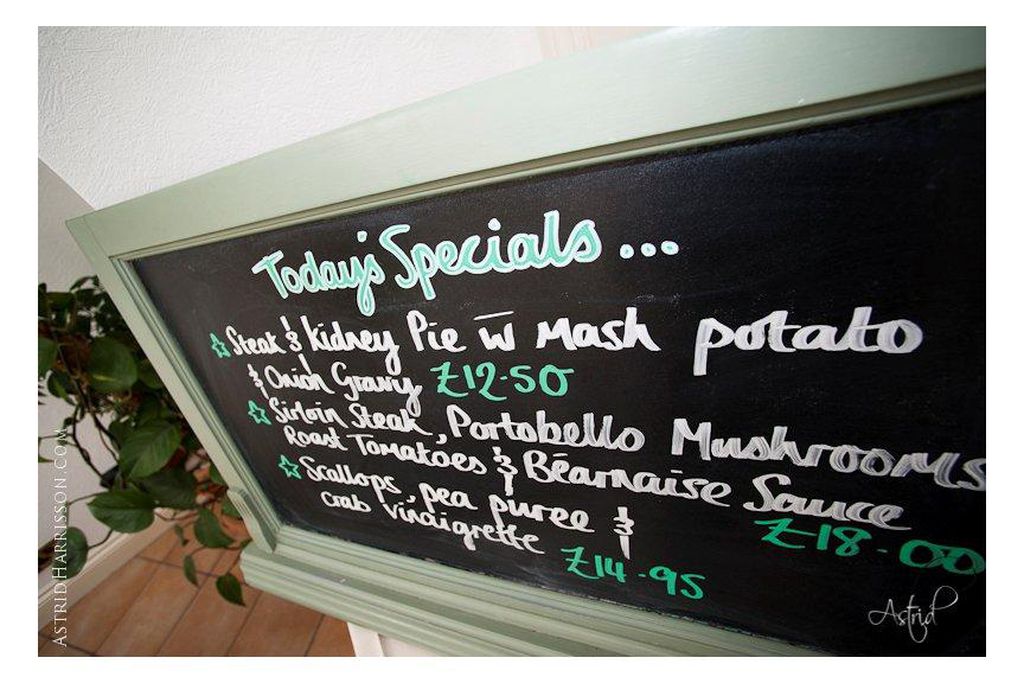 Today's Specials...
☆ Steak & Kidney Pie w̄ Mash potato
& Onion Gravy £12-50
☆ Sirloin Steak, Portobello Mushrooms
Roast Tomatoes & Béarnaise Sauce
£18-00
☆ Scallops, pea puree &
Crab Vinaigrette
£14-95
Astrid
ASTRIDHARRISSON.COM